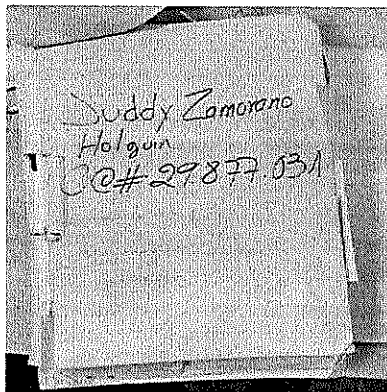 Suddy Zamorano
Holguin
CC# 29877.031